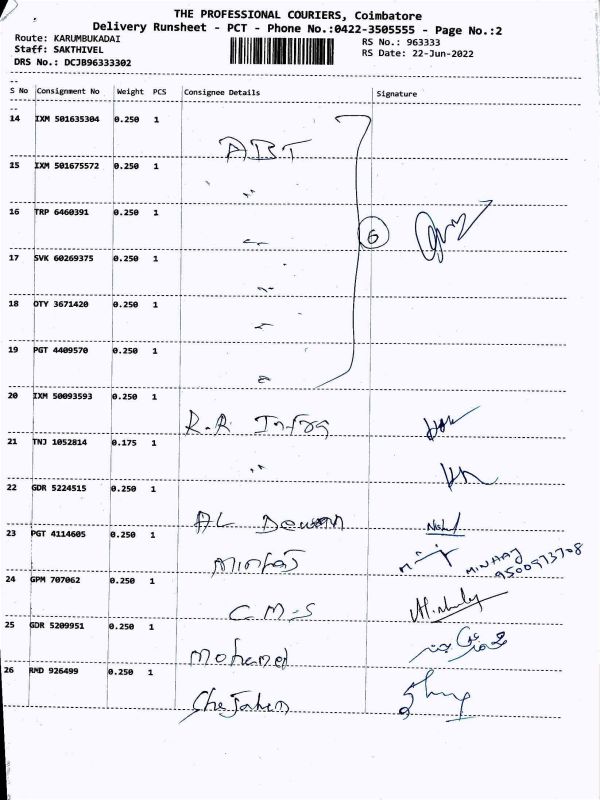 THE PROFESSIONAL COURIERS, Coimbatore
Delivery Runsheet - PCT - Phone No.:0422-3505555 - Page No.:2
Route: KARUMBUKADAI
RS No.: 963333
Staff: SAKTHIVEL
RS Date: 22-Jun-2022
DRS No.: DCJB96333302
S No Consignment No Weight PCS Consignee Details Signature
14 IXM 501635304 0.250 1 ABT
15 IXM 501675572 0.250 1 "
16 TRP 6460391 0.250 1 6
17 SVK 60269375 0.250 1
18 OTY 3671420 0.250 1
19 PGT 4409570 0.250 1
20 IXM 50093593 0.250 1 R.R Infra
21 TNJ 1052814 0.175 1 "
22 GDR 5224515 0.250 1 AL
23 PGT 4114605 0.250 1 Minhaj MINHAJ
9500973708
24 GPM 707062 0.250 1 C.M.S
25 GDR 5209951 0.250 1 Mohamed
26 RMD 926499 0.250 1